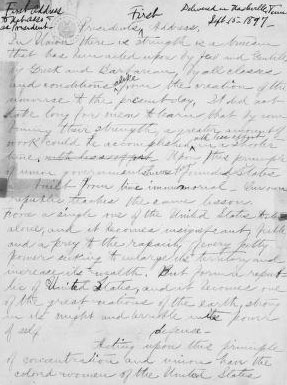 First address
to Afro Assn
as President
First
Delivered in Nashville, Tenn
Sept. 15 - 1897.
Presidents Address.
In Union there is strength is a truism
that has been acted upon by Jew and Gentile
by Greek and Barbarian by all classes
and conditions alike from the creation of the
universe to the present day. It did not
take long for men to learn that by com-
bining their strength, a greater amount of
work could be accomplished with less effort in a shorter
time, with less effort. Upon this principle
of union governments have been founded & States
built from time immemorial - Our own
republic teaches the same lesson
Force a single one of the United States to stand
alone, and it becomes insignificant, feeble
and a prey to the rapacity of every petty
power seeking to enlarge its territory and
increase its wealth. But form a repub-
lic of United States, and it becomes one
of the great nations of the earth, strong
in its might and terrible in its power
of self defense -
Acting upon this principle
of concentration and union have the
colored women of the United States